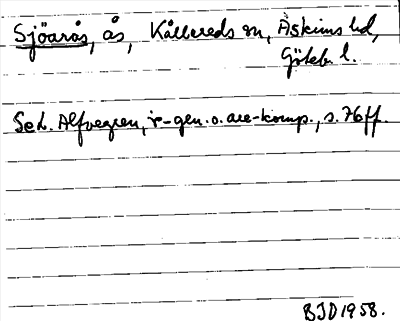 Sjöarås, ås, Kållereds sn, Askims hd,
Göteb. l.
Se L. Alfvegren, r-gen. o. are-komp., s. 76 ff.
BJD 1958.